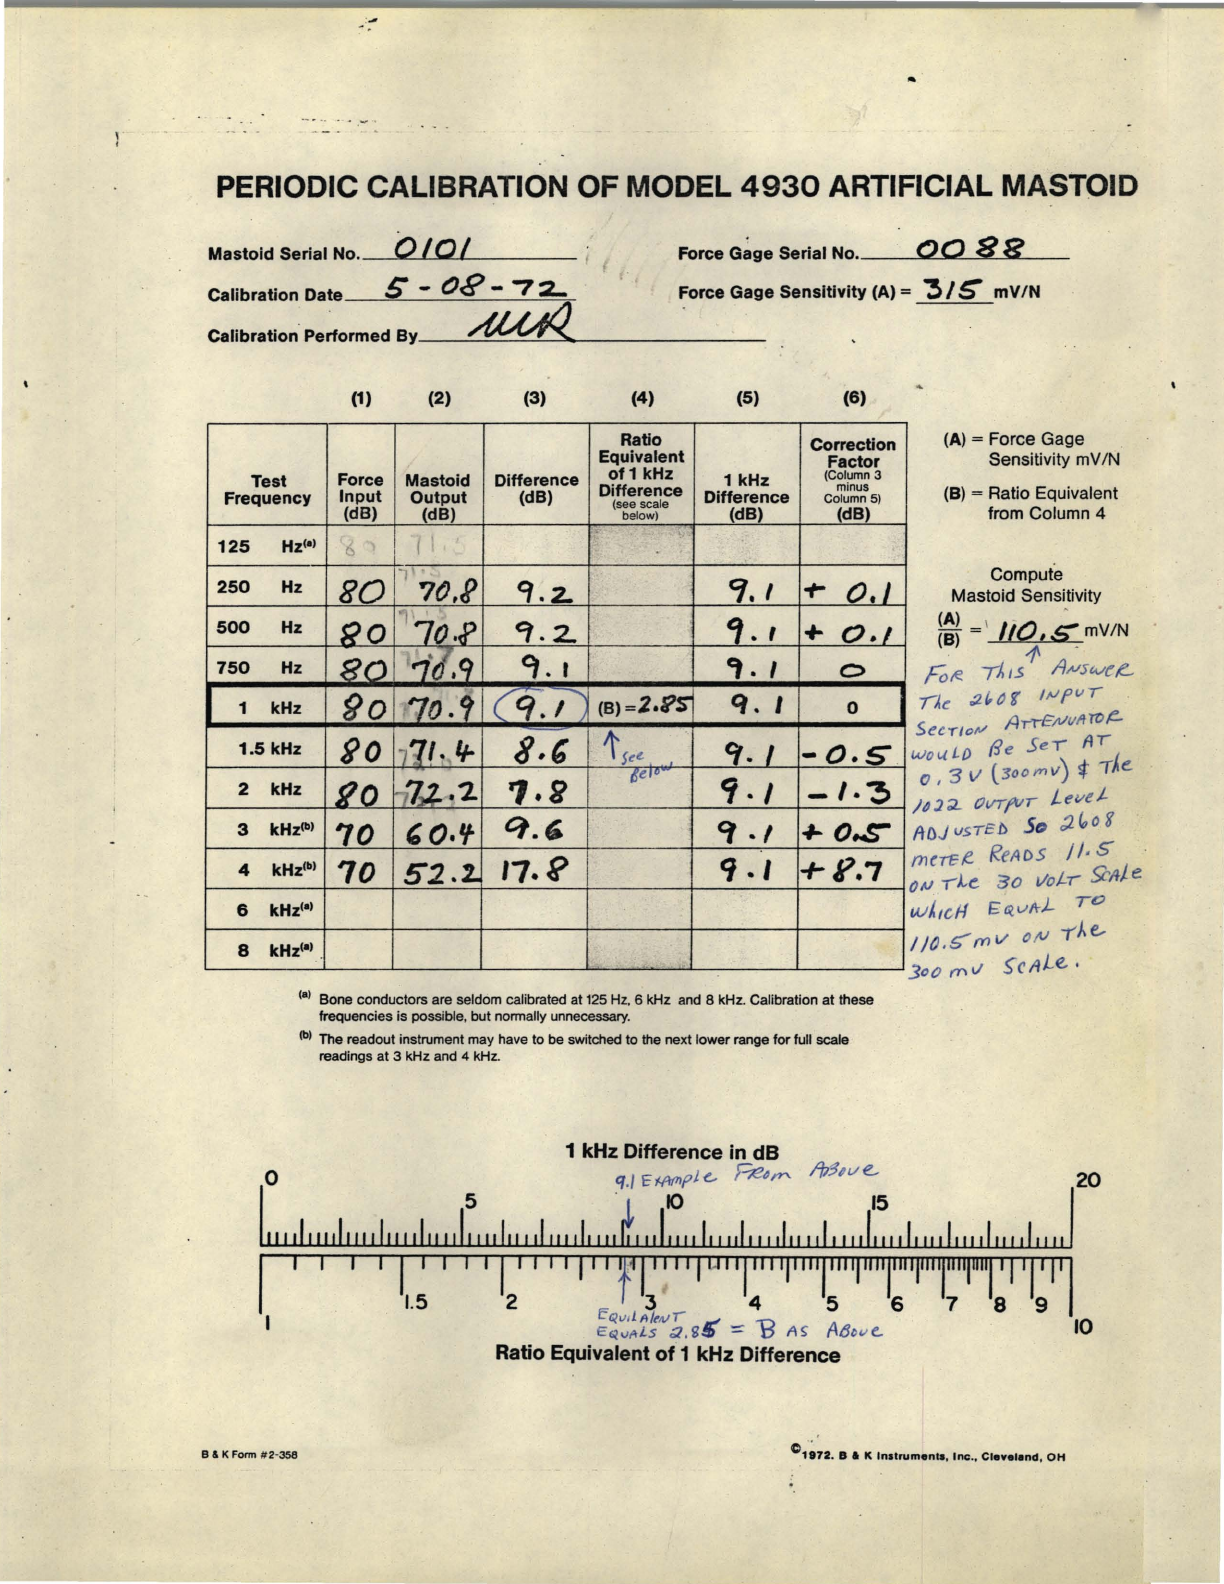 PERIODIC CALIBRATION OF MODEL 4930 ARTIFICIAL MASTOID
Mastoid Serial No. 0101 Force Gage Serial No. 0088
Calibration Date 5-08-72 Force Gage Sensitivity (A) = 315 mV/N
Calibration Performed By
(1) (2) (3) (4) (5) (6)
Test Frequency Force Input (dB) Mastoid Output (dB) Difference (dB) Ratio Equivalent of 1 kHz Difference (see scale below) 1 kHz Difference (dB) Correction Factor (Column 3 minus Column 5) (dB)
125 Hz(a) 80 71.5
250 Hz 80 70.8 9.2 9.1 + 0.1
500 Hz 80 70.8 9.2 9.1 + 0.1
750 Hz 80 70.9 9.1 9.1 0
1 kHz 80 70.9 9.1 (B) = 2.85 9.1 0
1.5 kHz 80 71.4 8.6 See Below 9.1 - 0.5
2 kHz 80 72.2 7.8 9.1 - 1.3
3 kHz(b) 70 60.4 9.6 9.1 + 0.5
4 kHz(b) 70 52.2 17.8 9.1 + 8.7
6 kHz(a)
8 kHz(a)
(A) = Force Gage
Sensitivity mV/N
(B) = Ratio Equivalent
from Column 4
Compute
Mastoid Sensitivity
(A)/(B) = 110.5 mV/N
FOR This ANSWER
The 2608 INPUT
SECTION ATTENUATOR
WOULD Be SeT AT
0.3 V (300mv) & The
1022 OUTPUT LeveL
ADJUSTED SO 2608
meTER ReADS 11.5
ON The 30 VOLT SCALe
WhICH EQUAL TO
110.5 mv ON The
300 mv SCALe.
(a) Bone conductors are seldom calibrated at 125 Hz, 6 kHz and 8 kHz. Calibration at these
frequencies is possible, but normally unnecessary.
(b) The readout instrument may have to be switched to the next lower range for full scale
readings at 3 kHz and 4 kHz.
1 kHz Difference in dB
9.1 EXAMPLe FROM ABOVe
0 5 10 15 20
1 1.5 2 3 4 5 6 7 8 9 10
EQUILALeNT
EQUALS 2.85 = B AS ABOVe
Ratio Equivalent of 1 kHz Difference
B & K Form #2-358
©1972. B & K Instruments, Inc., Cleveland, OH